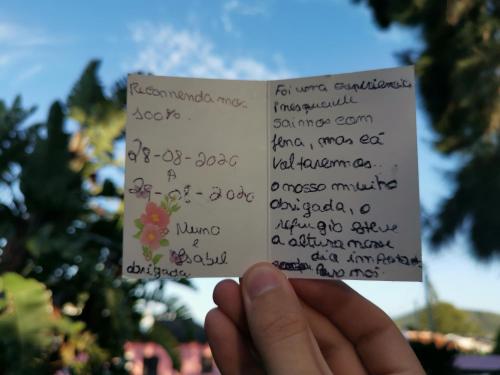 Recomendamos
100%.
28-08-2020
A
29-08-2020
Nuno
e
Isabel
obrigada
Foi uma experiencia
inesquecivel
saimos com
pena, mas cá
voltaremos...
o nosso muito
obrigada, o
refugio esteve
a altura nesse
dia importante
para nos.